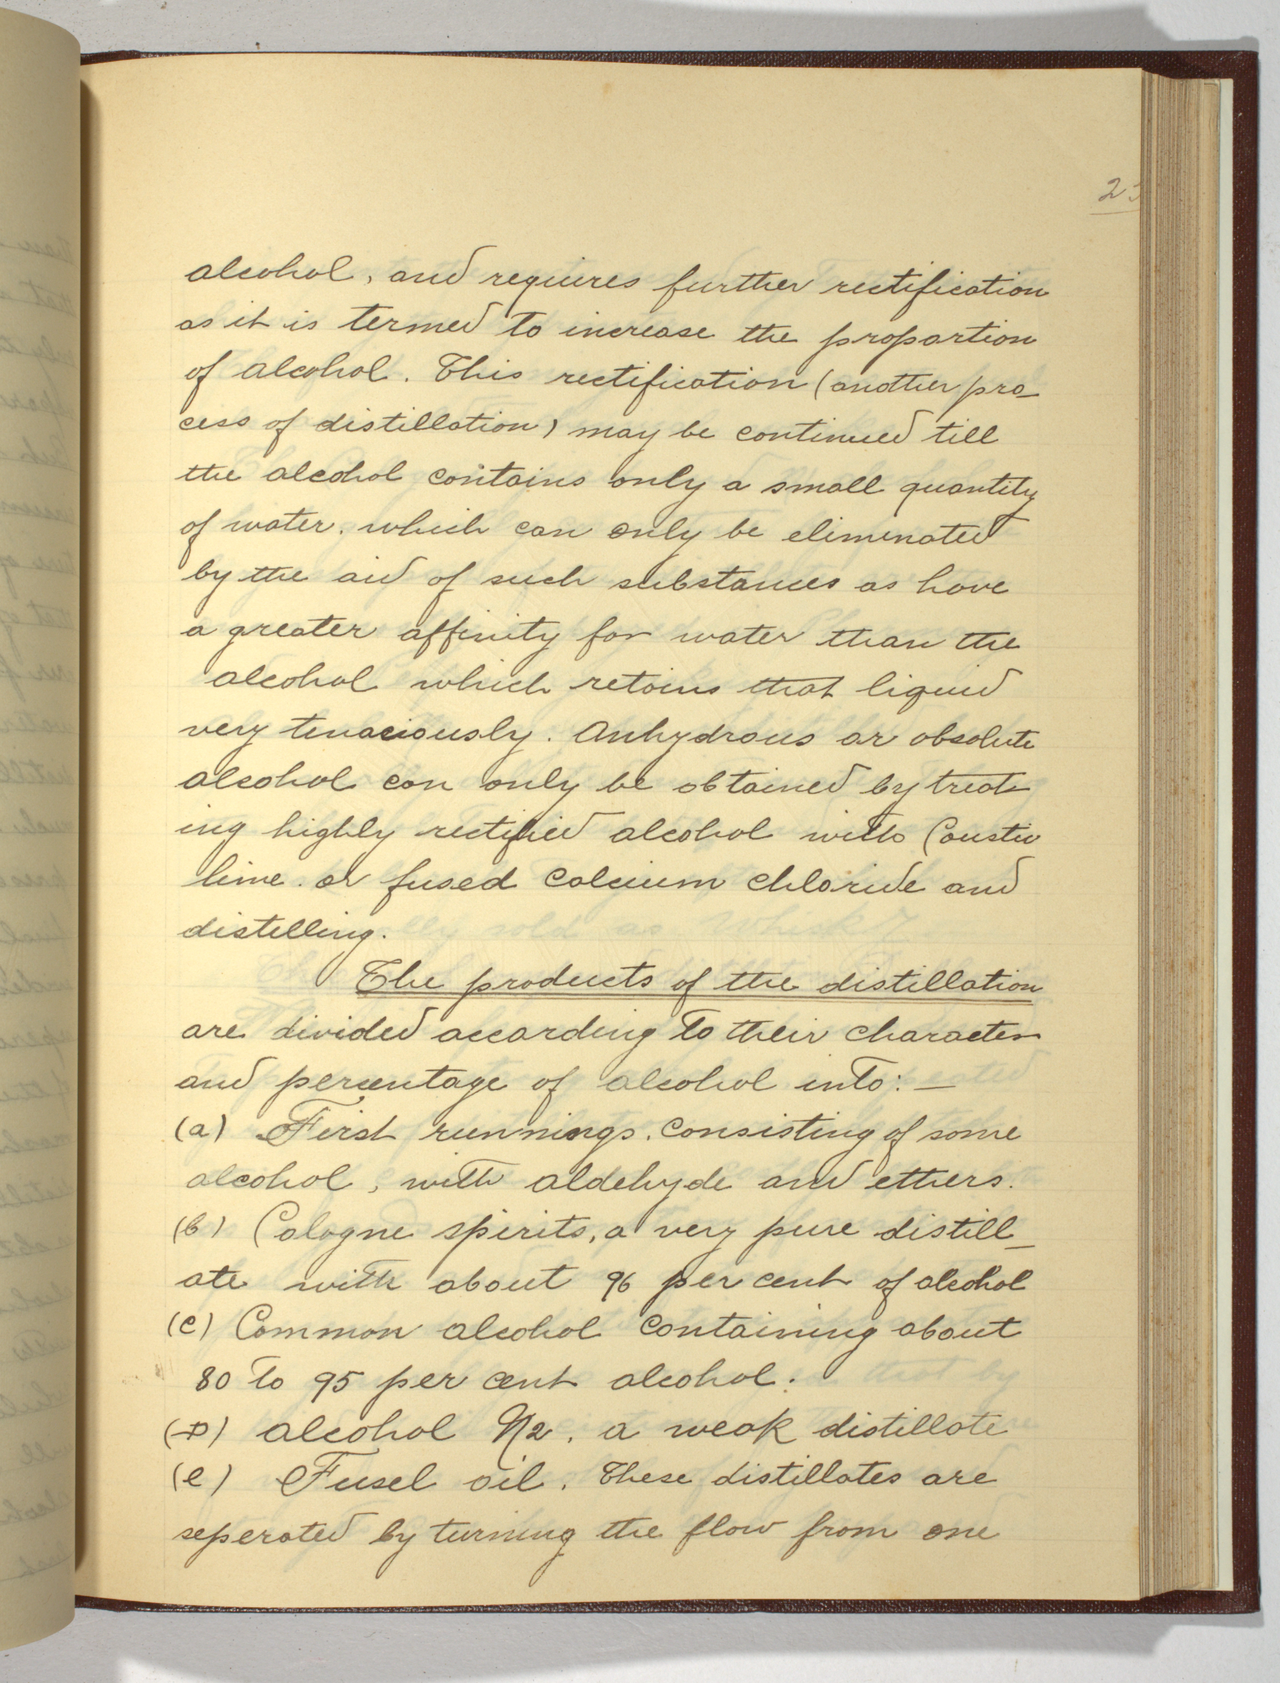 alcohol, and requires further rectification
as it is termed to increase the proportion
of alcohol. This rectification (another pro-
cess of distillation) may be continued till
the alcohol contains only a small quantity
of water. which can only be eliminated
by the aid of such substances as have
a greater affinity for water than the
alcohol which retains that liquid
very tenaciously. Anhydrous or absolute
alcohol can only be obtained by treat-
ing highly rectified alcohol with Caustic
lime. or fused Calcium chloride and
distilling.
The products of the distillation
are divided according to their character
and percentage of alcohol into: —
(a) First runnings. Consisting of some
alcohol, with aldehyde and ethers.
(b) Cologne spirits, a very pure distill-
ate with about 96 per cent of alcohol
(c) Common alcohol containing about
80 to 95 per cent alcohol.
(D) alcohol N2, a weak distillate
(e) Fusel oil. These distillates are
seperated by turning the flow from one